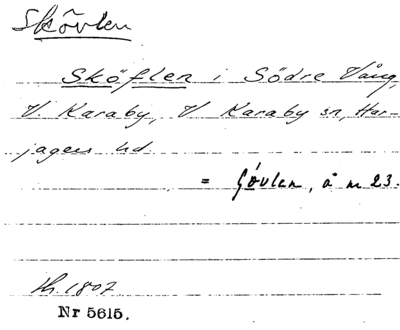 Skövlen
Sköflen i Södre Vång,
V. Karaby, V Karaby sn, Har-
jagers hd.
= Gövlen, å n 23.
Nr 5615.